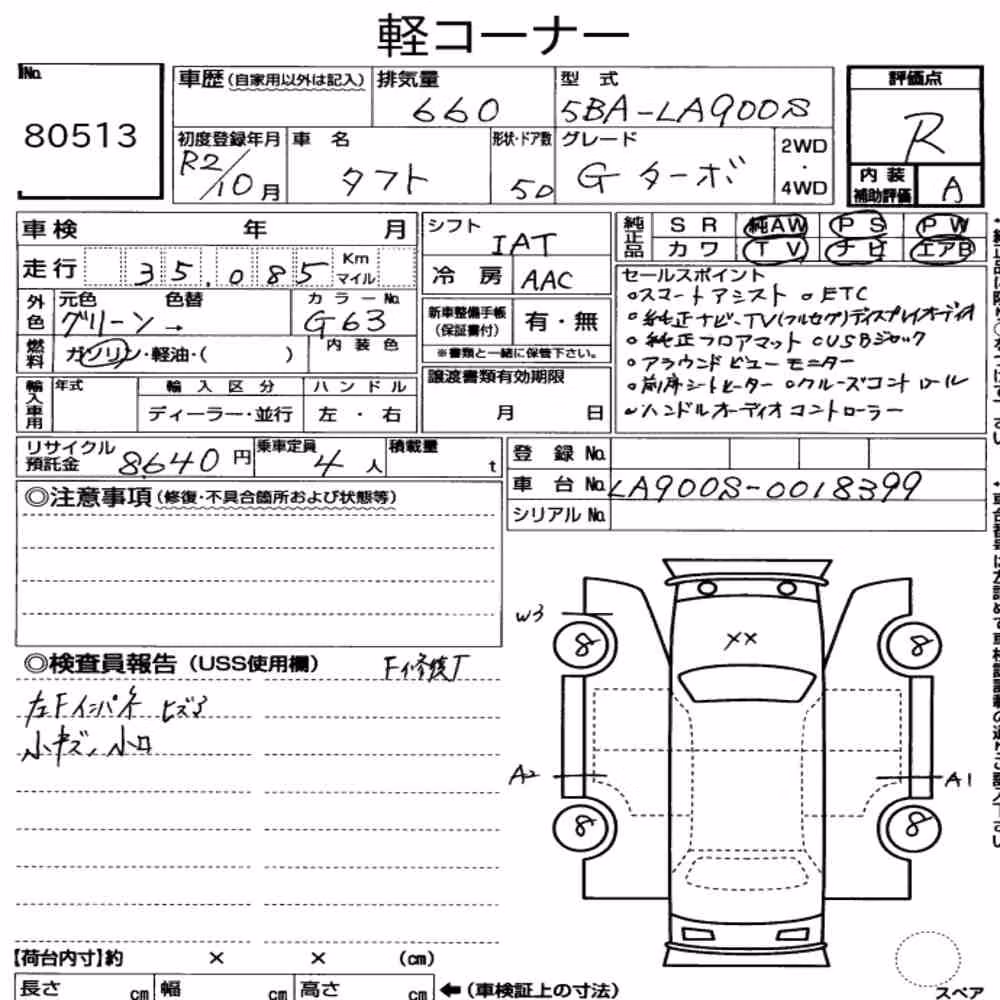 軽コーナー
No.
80513
車歴（自家用以外は記入）
排気量
660
型 式
5BA-LA900S
評価点
R
初度登録年月
R2/10月
車 名
タフト
形状・ドア数
5D
グレード
Gターボ
2WD
・
4WD
内 装
補助評価
A
車検 年 月
走行 35,085 Km マイル
外色
元色 色替
グリーン→
カラーNo.
G63
燃料
ガソリン・軽油・（ ）
内 装 色
輸入車用
年式
輸 入 区 分
ディーラー・並行
ハ ン ド ル
左 ・ 右
シフト
IAT
冷 房
AAC
新車整備手帳
（保証書付）
有・無
※書類と一緒に保管下さい。
譲渡書類有効期限
月 日
純正品
S R 純AW P S P W
カ ワ T V ナ ビ エアB
セールスポイント
○スマートアシスト ○ETC
○純正ナビ-TV(フルセグ)ディスプレイオーディオ
○純正フロアマット ○USBジャック
○アラウンドビューモニター
○前席シートヒーター ○クルーズコントロール
○ハンドルオーディオコントローラー
リサイクル
預託金
8640円
乗車定員
4人
積載量
t
登 録 No.
車 台 No. LA900S-0018399
シリアル No.
◎注意事項（修復・不具合箇所および状態等）
◎検査員報告（USS使用欄）
F修複T
左Fインパネ ヒズミ
小キズ、小凹
W3
8
8
XX
A2
A1
8
8
【荷台内寸】約 × × （cm）
長さ cm
幅 cm
高さ cm
←（車検証上の寸法）
スペア